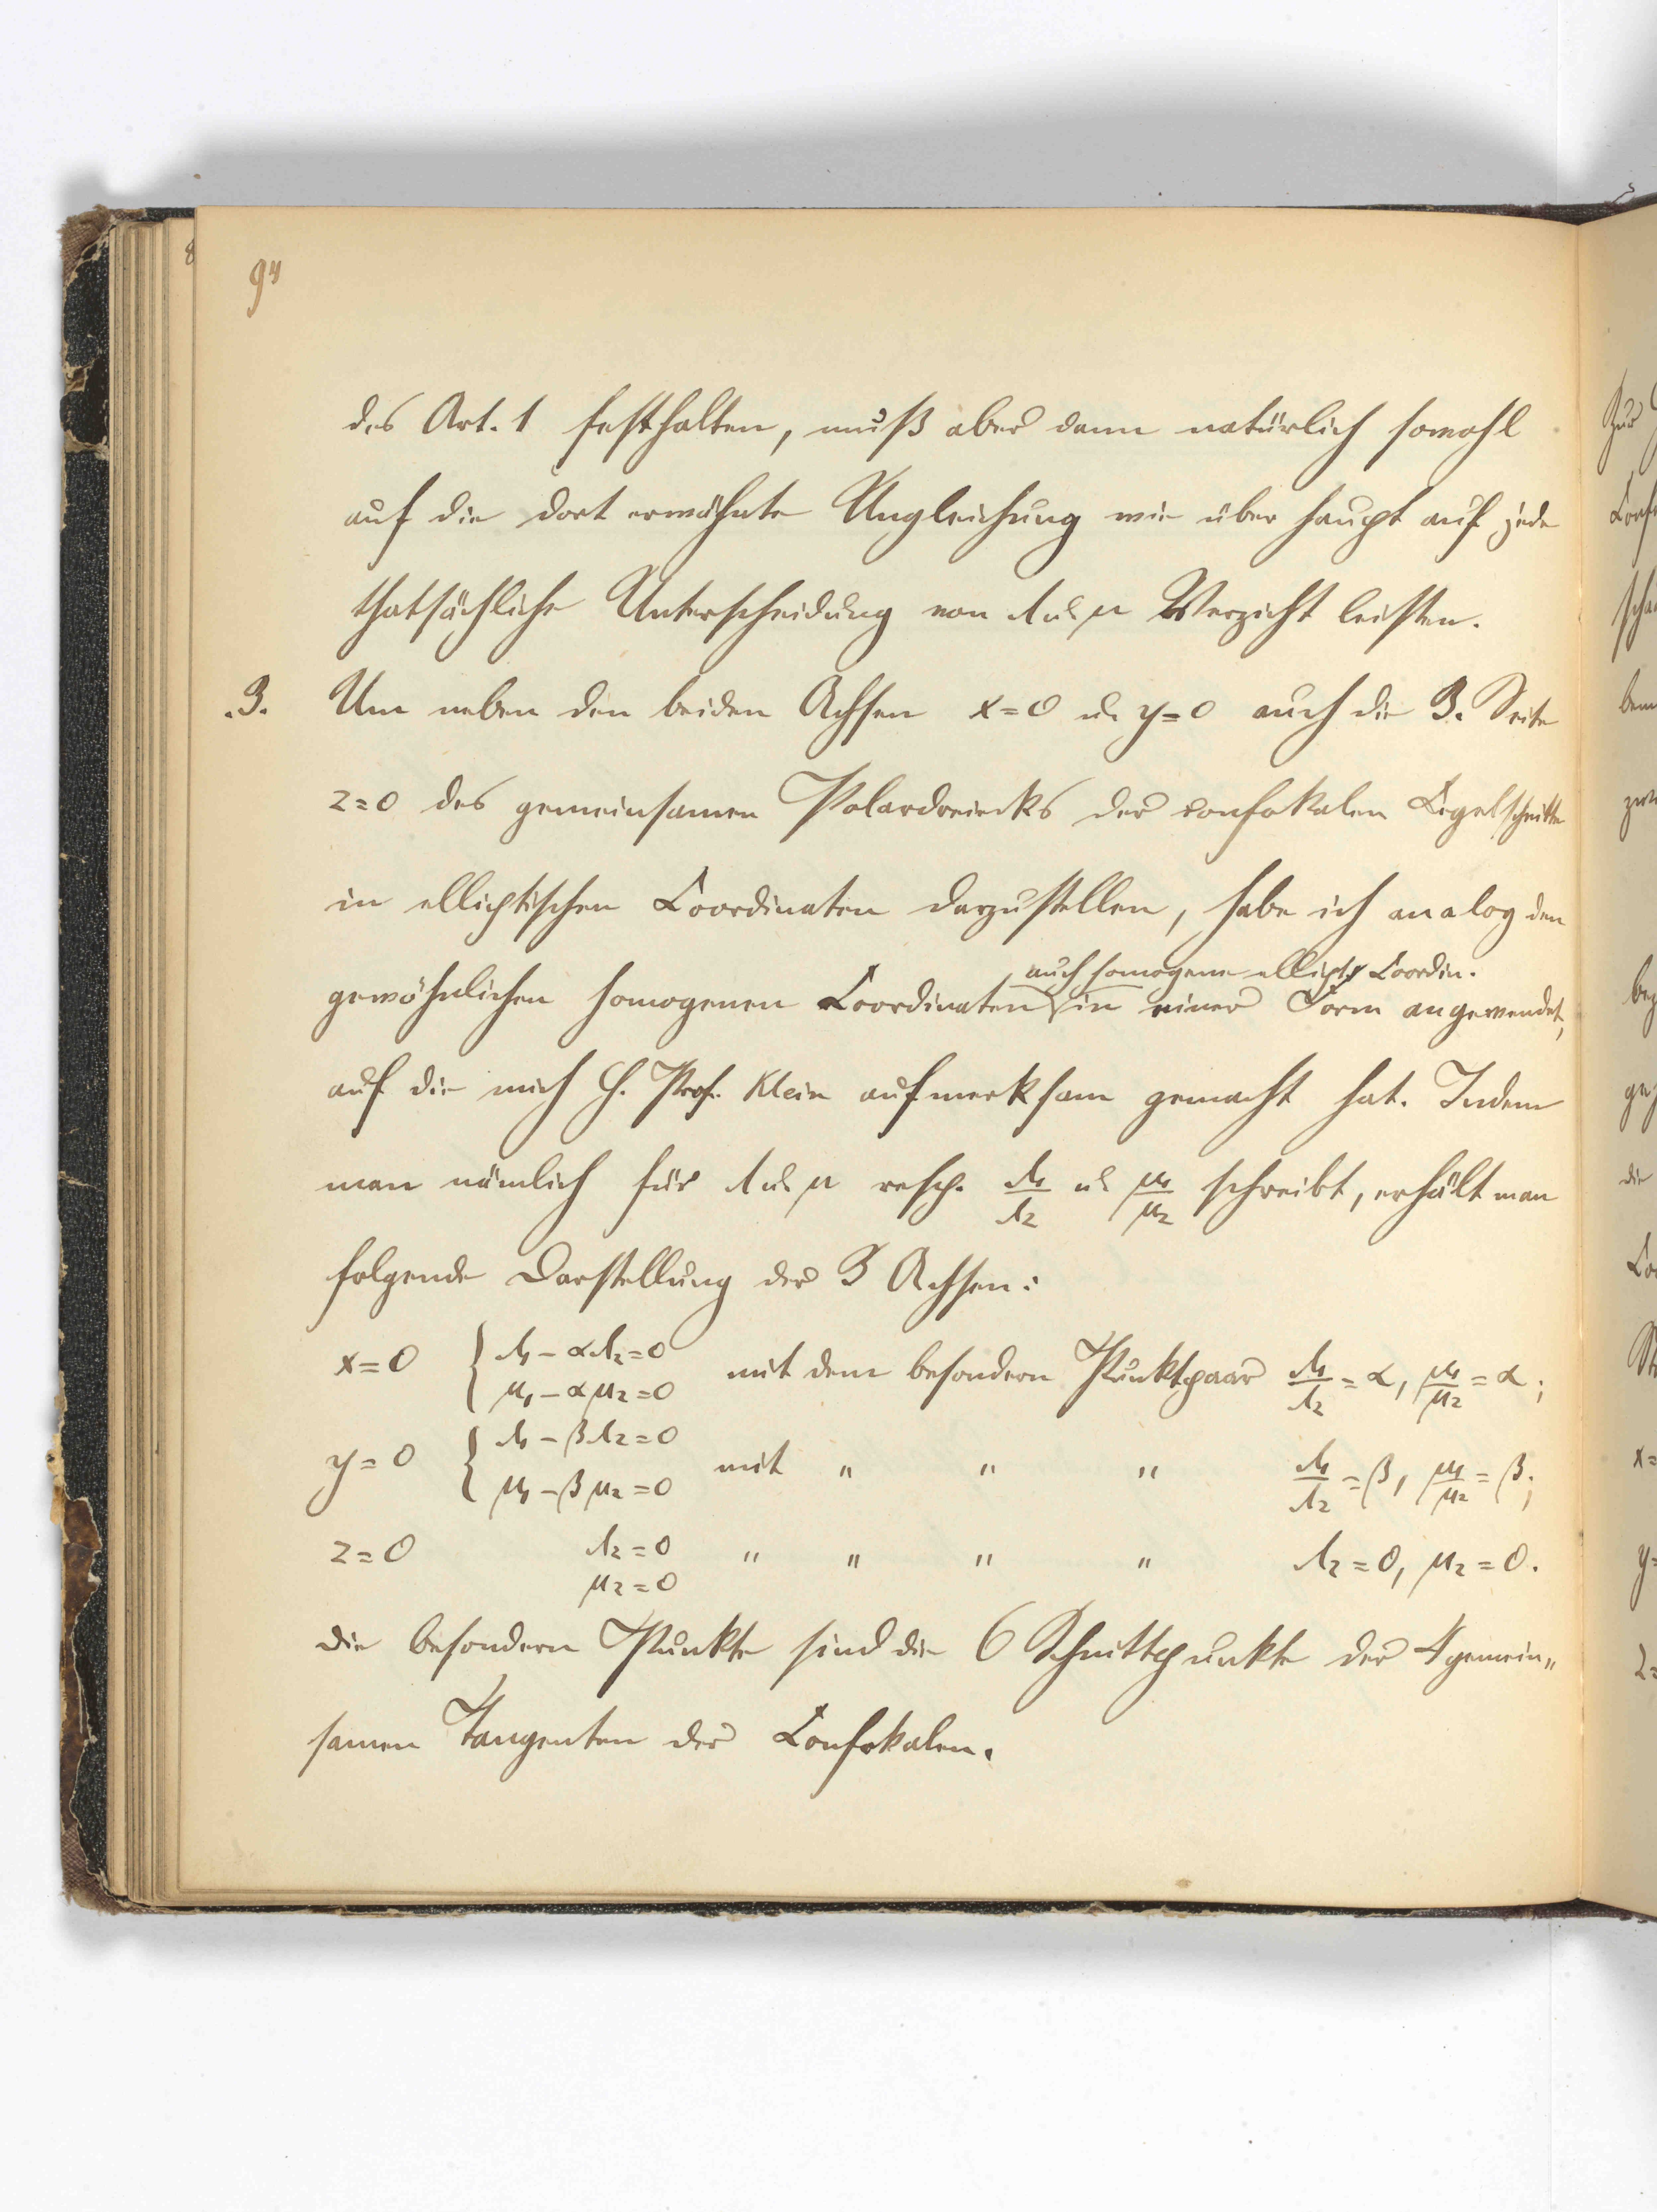 94
des Art. 1 festhalten, muß aber dann natürlich sowohl
auf die dort erwähnte Ungleichung wie überhaupt auf jede
thatsächliche Unterscheidung von λ u. μ Verzicht leisten.
.3. Um neben den beiden Achsen x=0 u. y=0 auch die 3. Seite
z=0 des gemeinsamen Polardreiecks der confokalen Kegelschnitte
in elliptischen Coordinaten darzustellen, habe ich analog den
auch homogene ellipt. Coordin.
gewöhnlichen homogenen Coordinaten in einer Form angewendet,
auf die mich H. Prof. Klein aufmerksam gemacht hat. Indem
man nämlich für λ u. μ resp. λ₁/λ₂ u. μ₁/μ₂ schreibt, erhält man
folgende Darstellung der 3 Achsen:
x=0 { λ₁ - αλ₂ = 0
μ₁ - αμ₂ = 0 mit dem besondern Punktpaar λ₁/λ₂ = α, μ₁/μ₂ = α;
y=0 { λ₁ - βλ₂ = 0
μ₁ - βμ₂ = 0 mit " " " λ₁/λ₂ = β, μ₁/μ₂ = β;
z=0 λ₂ = 0
μ₂ = 0 " " " " λ₂ = 0, μ₂ = 0.
Die besondern Punkte sind die 6 Schnittpunkte der 4 gemein„
samen Tangenten der Confokalen.